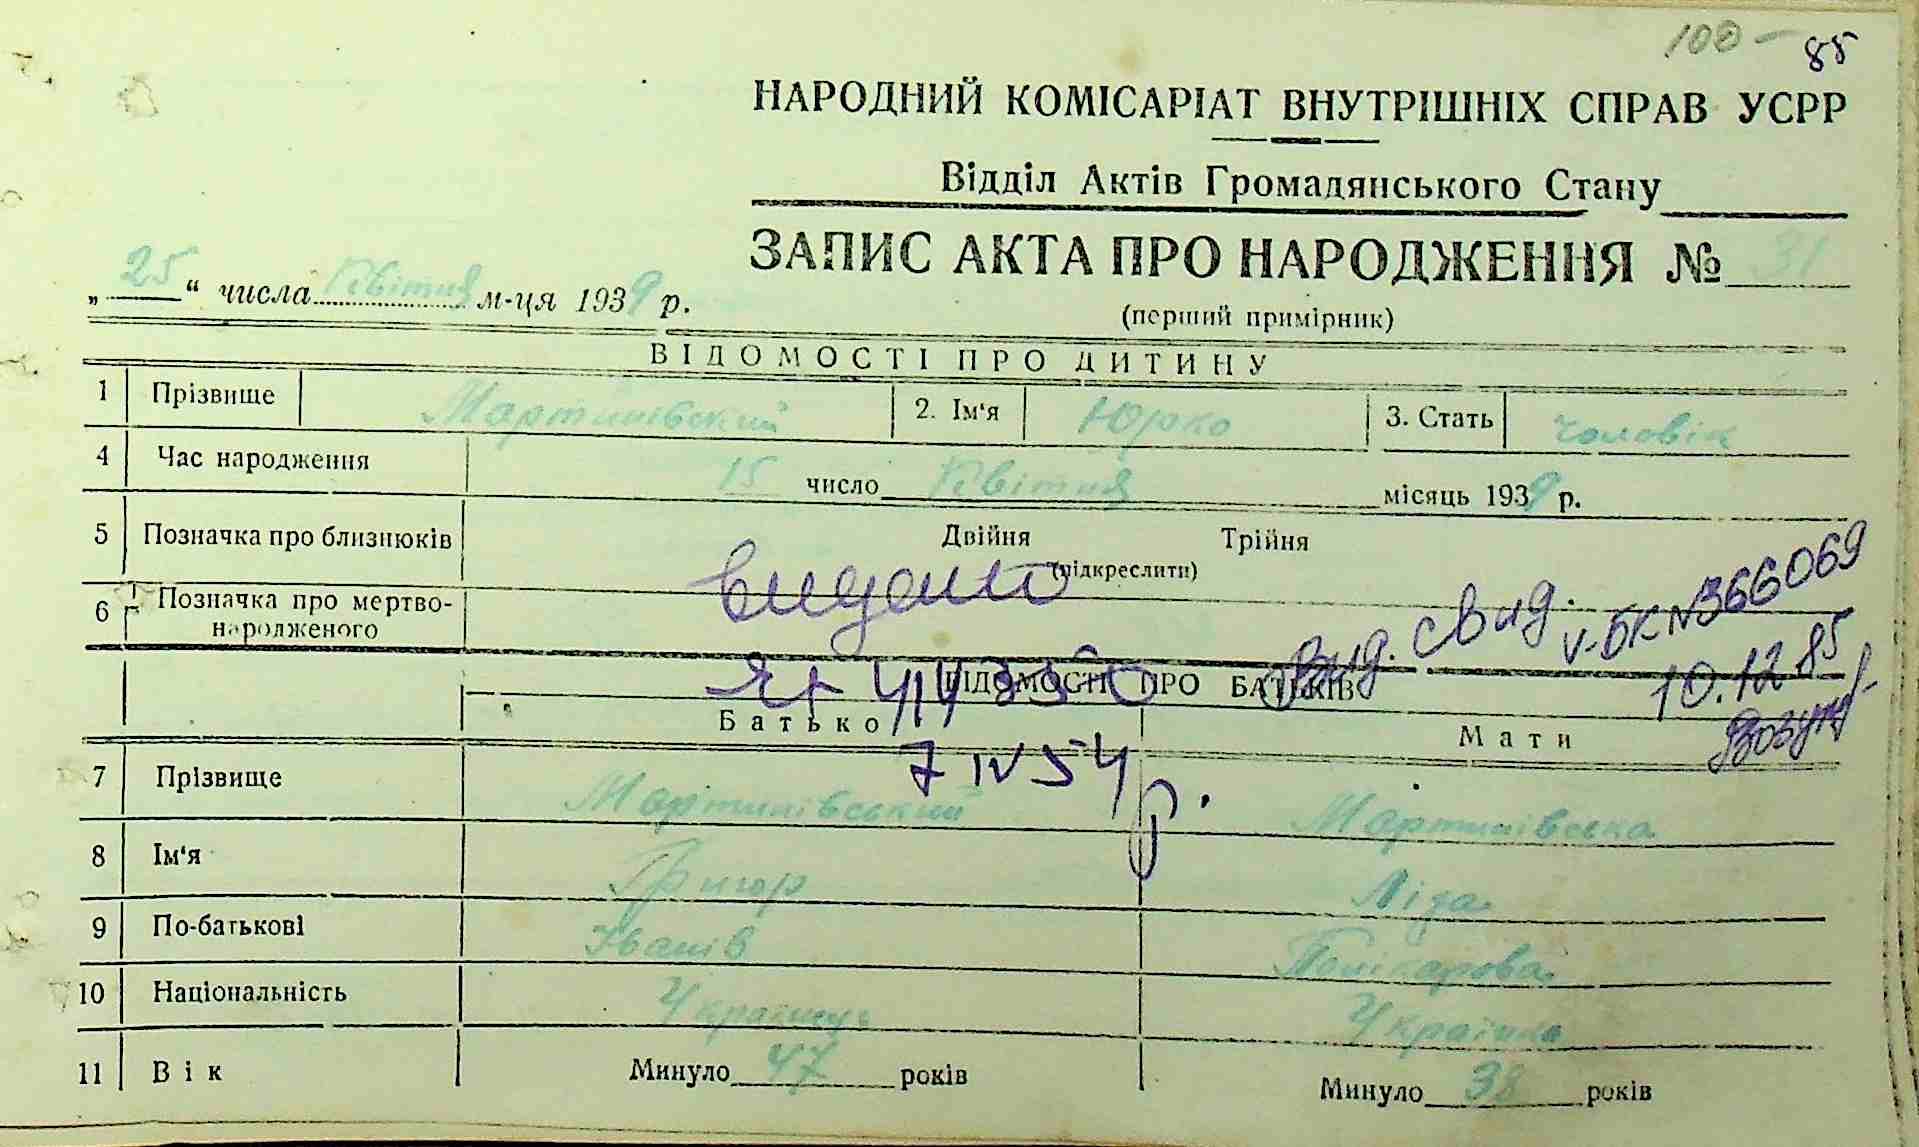 100 — 85
НАРОДНИЙ КОМІСАРІАТ ВНУТРІШНІХ СПРАВ УСРР
Відділ Актів Громадянського Стану
ЗАПИС АКТА ПРО НАРОДЖЕННЯ № 31
„25“ числа Квітня м-ця 1939 р.
(перший примірник)
ВІДОМОСТІ ПРО ДИТИНУ
1 Прізвище Мартинівский 2. Ім'я Юрко 3. Стать чоловік
4 Час народження 15 число Квітня місяць 1939 р.
5 Позначка про близнюків Двійня Трійня
(підкреслити)
видано
6 Позначка про мертво-
народженого
Вид. свид. V-БК №366069
10.12 85
ВІДОМОСТІ ПРО БАТЬКІВ
Батько Мати
7 IV 54 р.
7 Прізвище Мартинівський Мартинівська
8 Ім'я Григор Ліда
9 По-батькові Іванів Полікарова
10 Національність Українець Українка
11 Вік Минуло 47 років Минуло 38 років